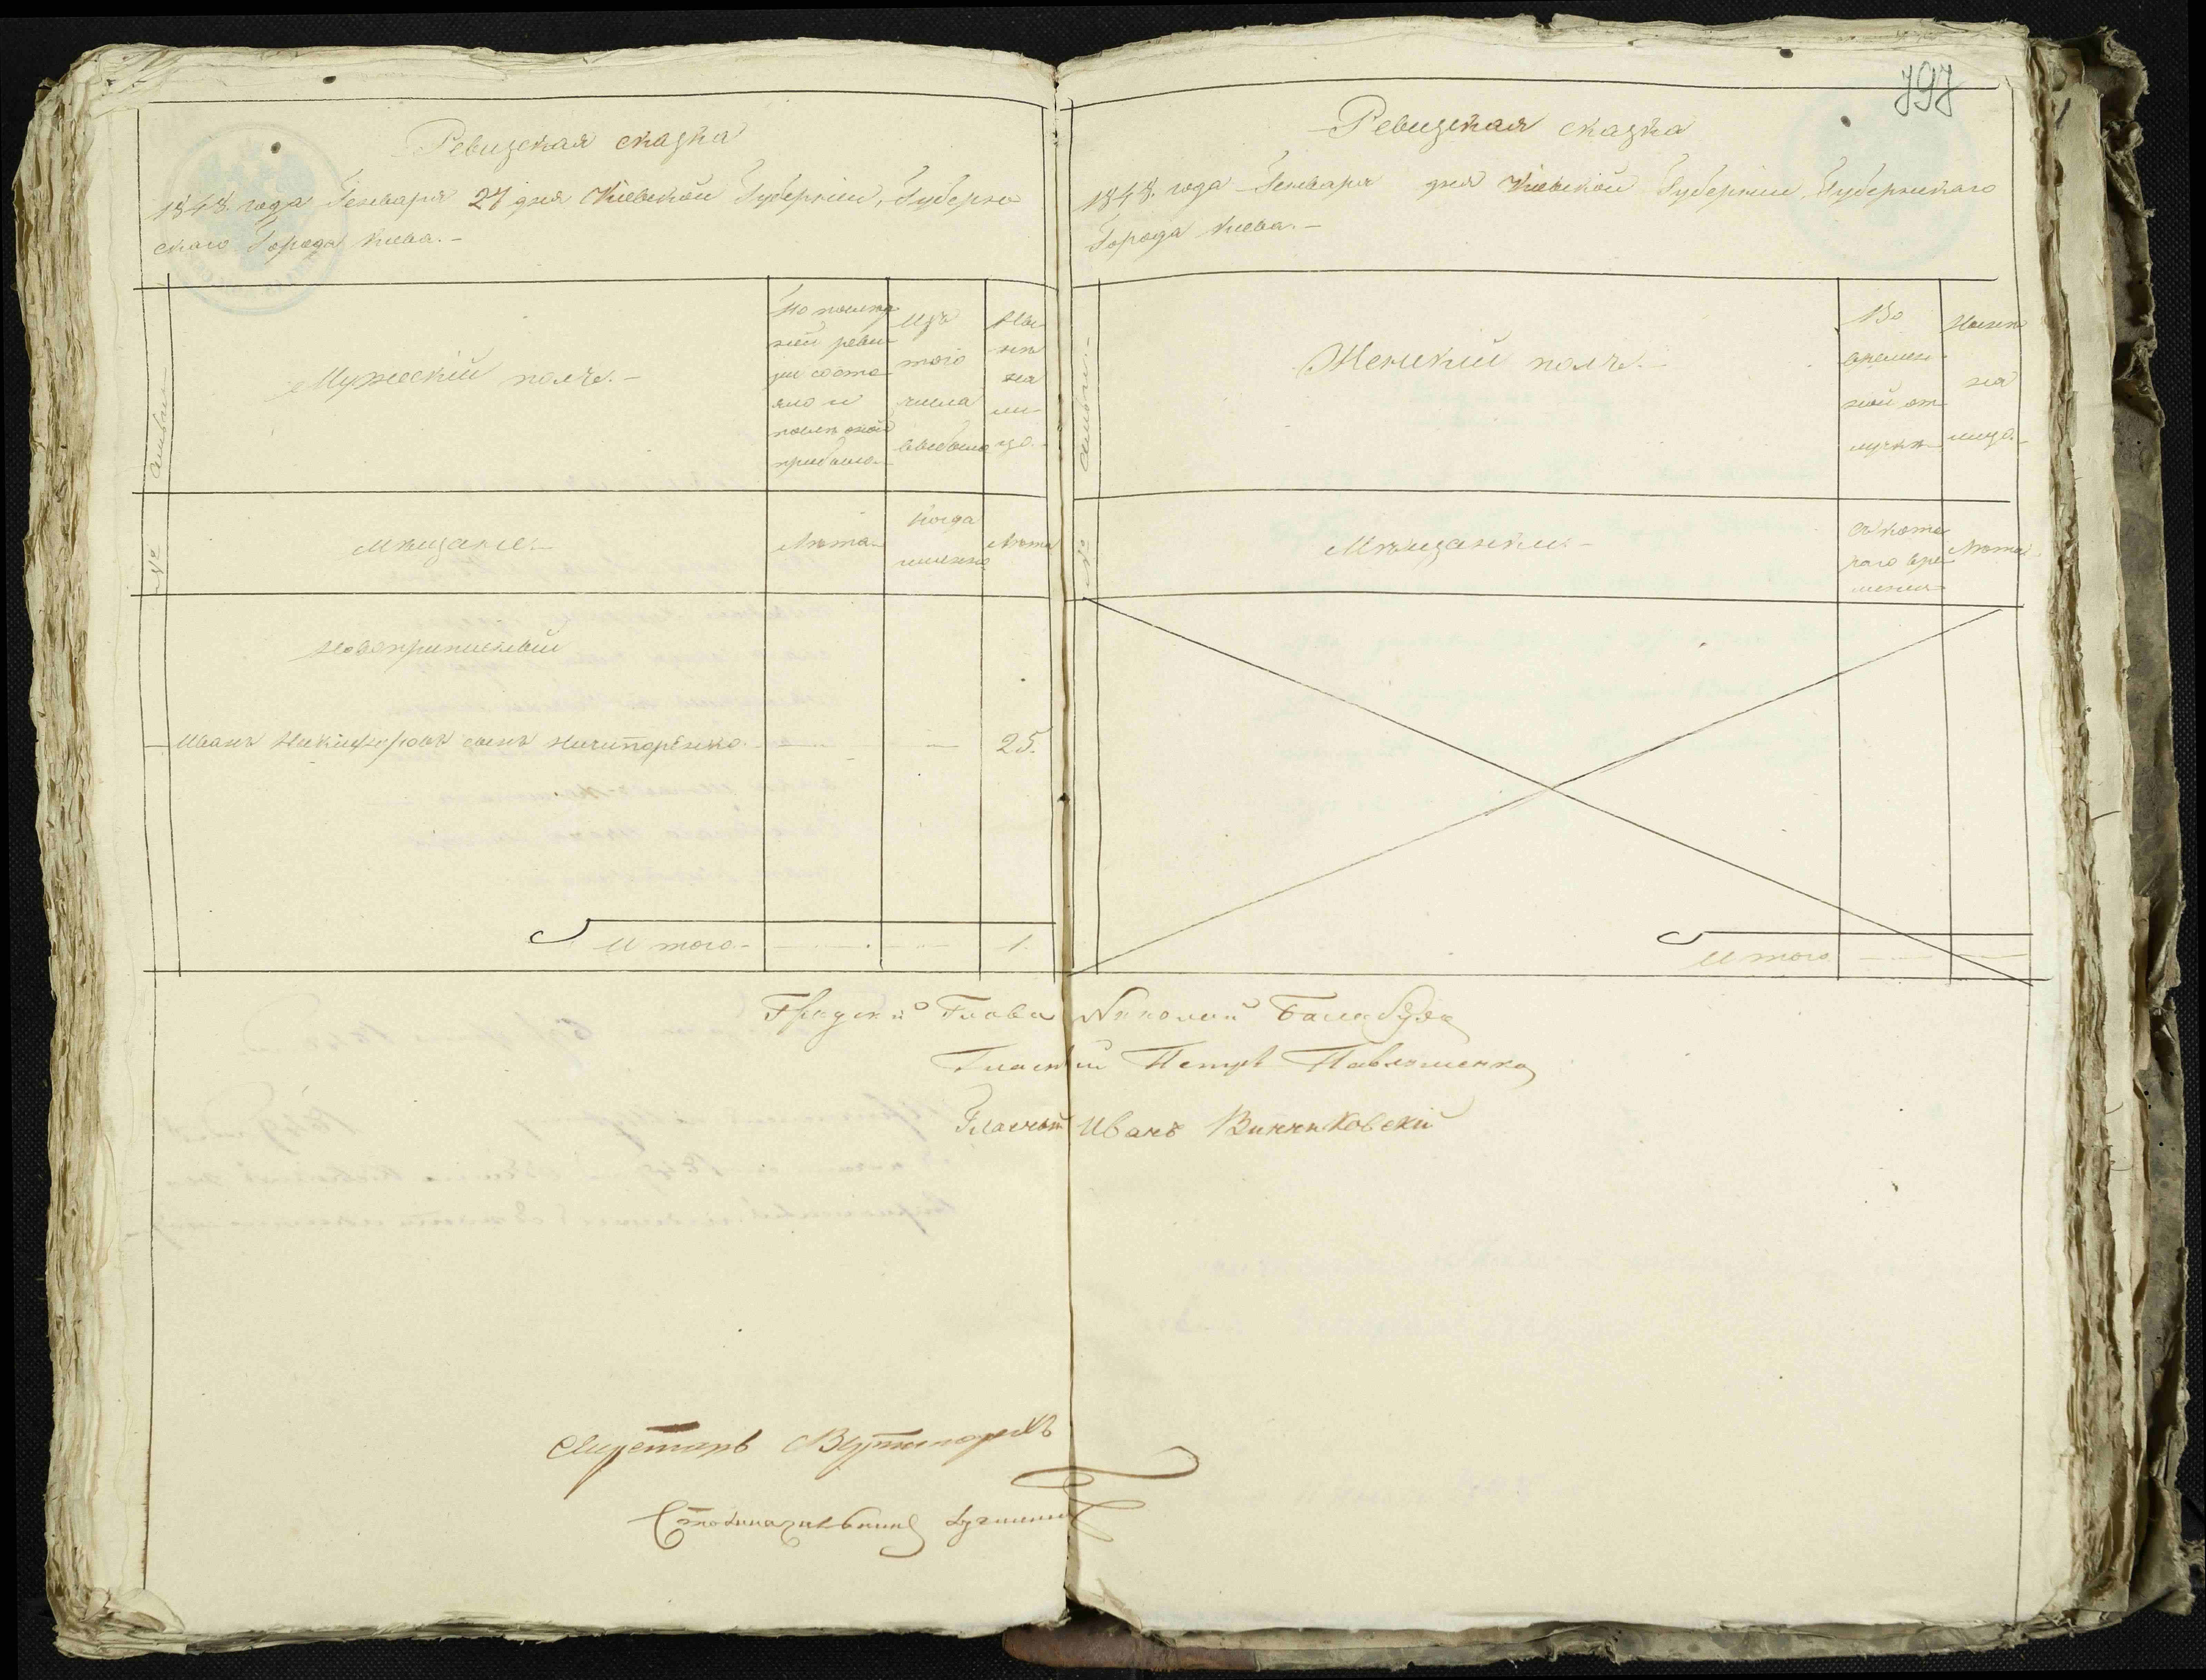 Ревизская сказка
1848. года Генваря 27 дня Кіевской Губерніи, Губернскаго Города Кіева. -
№ Семьи
Мужескій полъ. -
По послѣдней ревизіи состояло и послѣ оной прибыло
Изъ того числа выбыло
Нынѣ на лицо.
Мѣщане
Лѣта
Когда именно
Лѣта
Новоприписный
Иванъ Никифоровъ сынъ Ничипоренко — — 25.
Итого — — 1
797
Ревизская сказка
1848. года Генваря дня Кіевской Губерніи Губернскаго
Города Кіева. -
№ Семьи
Женскій полъ. -
Во временной отлучкѣ
Нынѣ на лицо.
Мѣщанки
Съ котораго времени
Лѣта
Итого — —
Градскій Глава Николай Балабуха
Гласный Петръ Павлюченко
Гласный Иванъ Винниковскій
Столоначальникъ